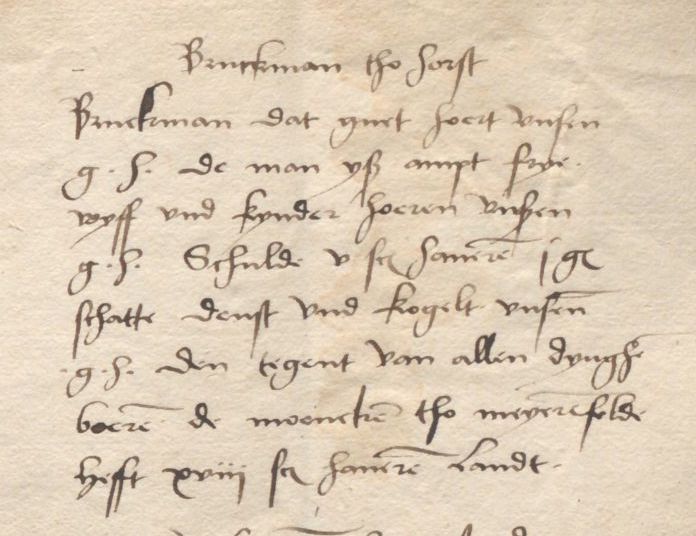 Bruckman tho Horst
Bruckman dat guet hoert vnsen
g. h. de man yß ampt frye.
wyff vnd kynder hoeren vnßen
g. h. Schulde v sc̄ haueren̄ j g
schatte denst vnd kogelt vnsen̄
g. h. den tegent van allen dynghē
boerē de moenekē tho meyerēfelde
hefft xviij sc̄ hauerē landt.